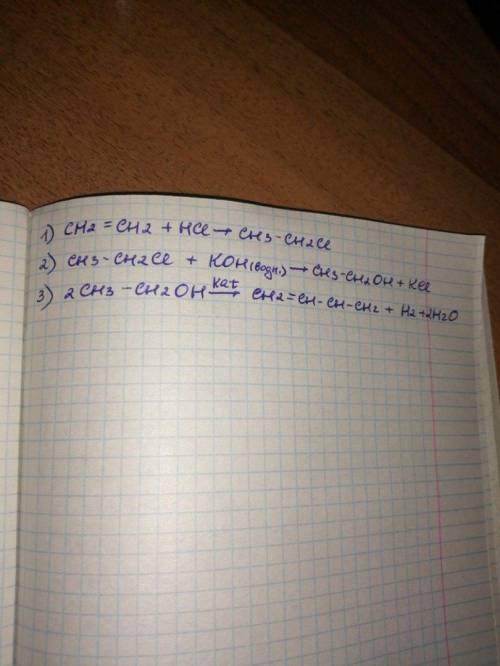 1) CH2 = CH2 + HCl → CH3 - CH2Cl
2) CH3 - CH2Cl + KOH(водн.) → CH3 - CH2OH + KCl
3) 2CH3 - CH2OH kat→ CH2 = CH - CH - CH2 + H2 + 2H2O